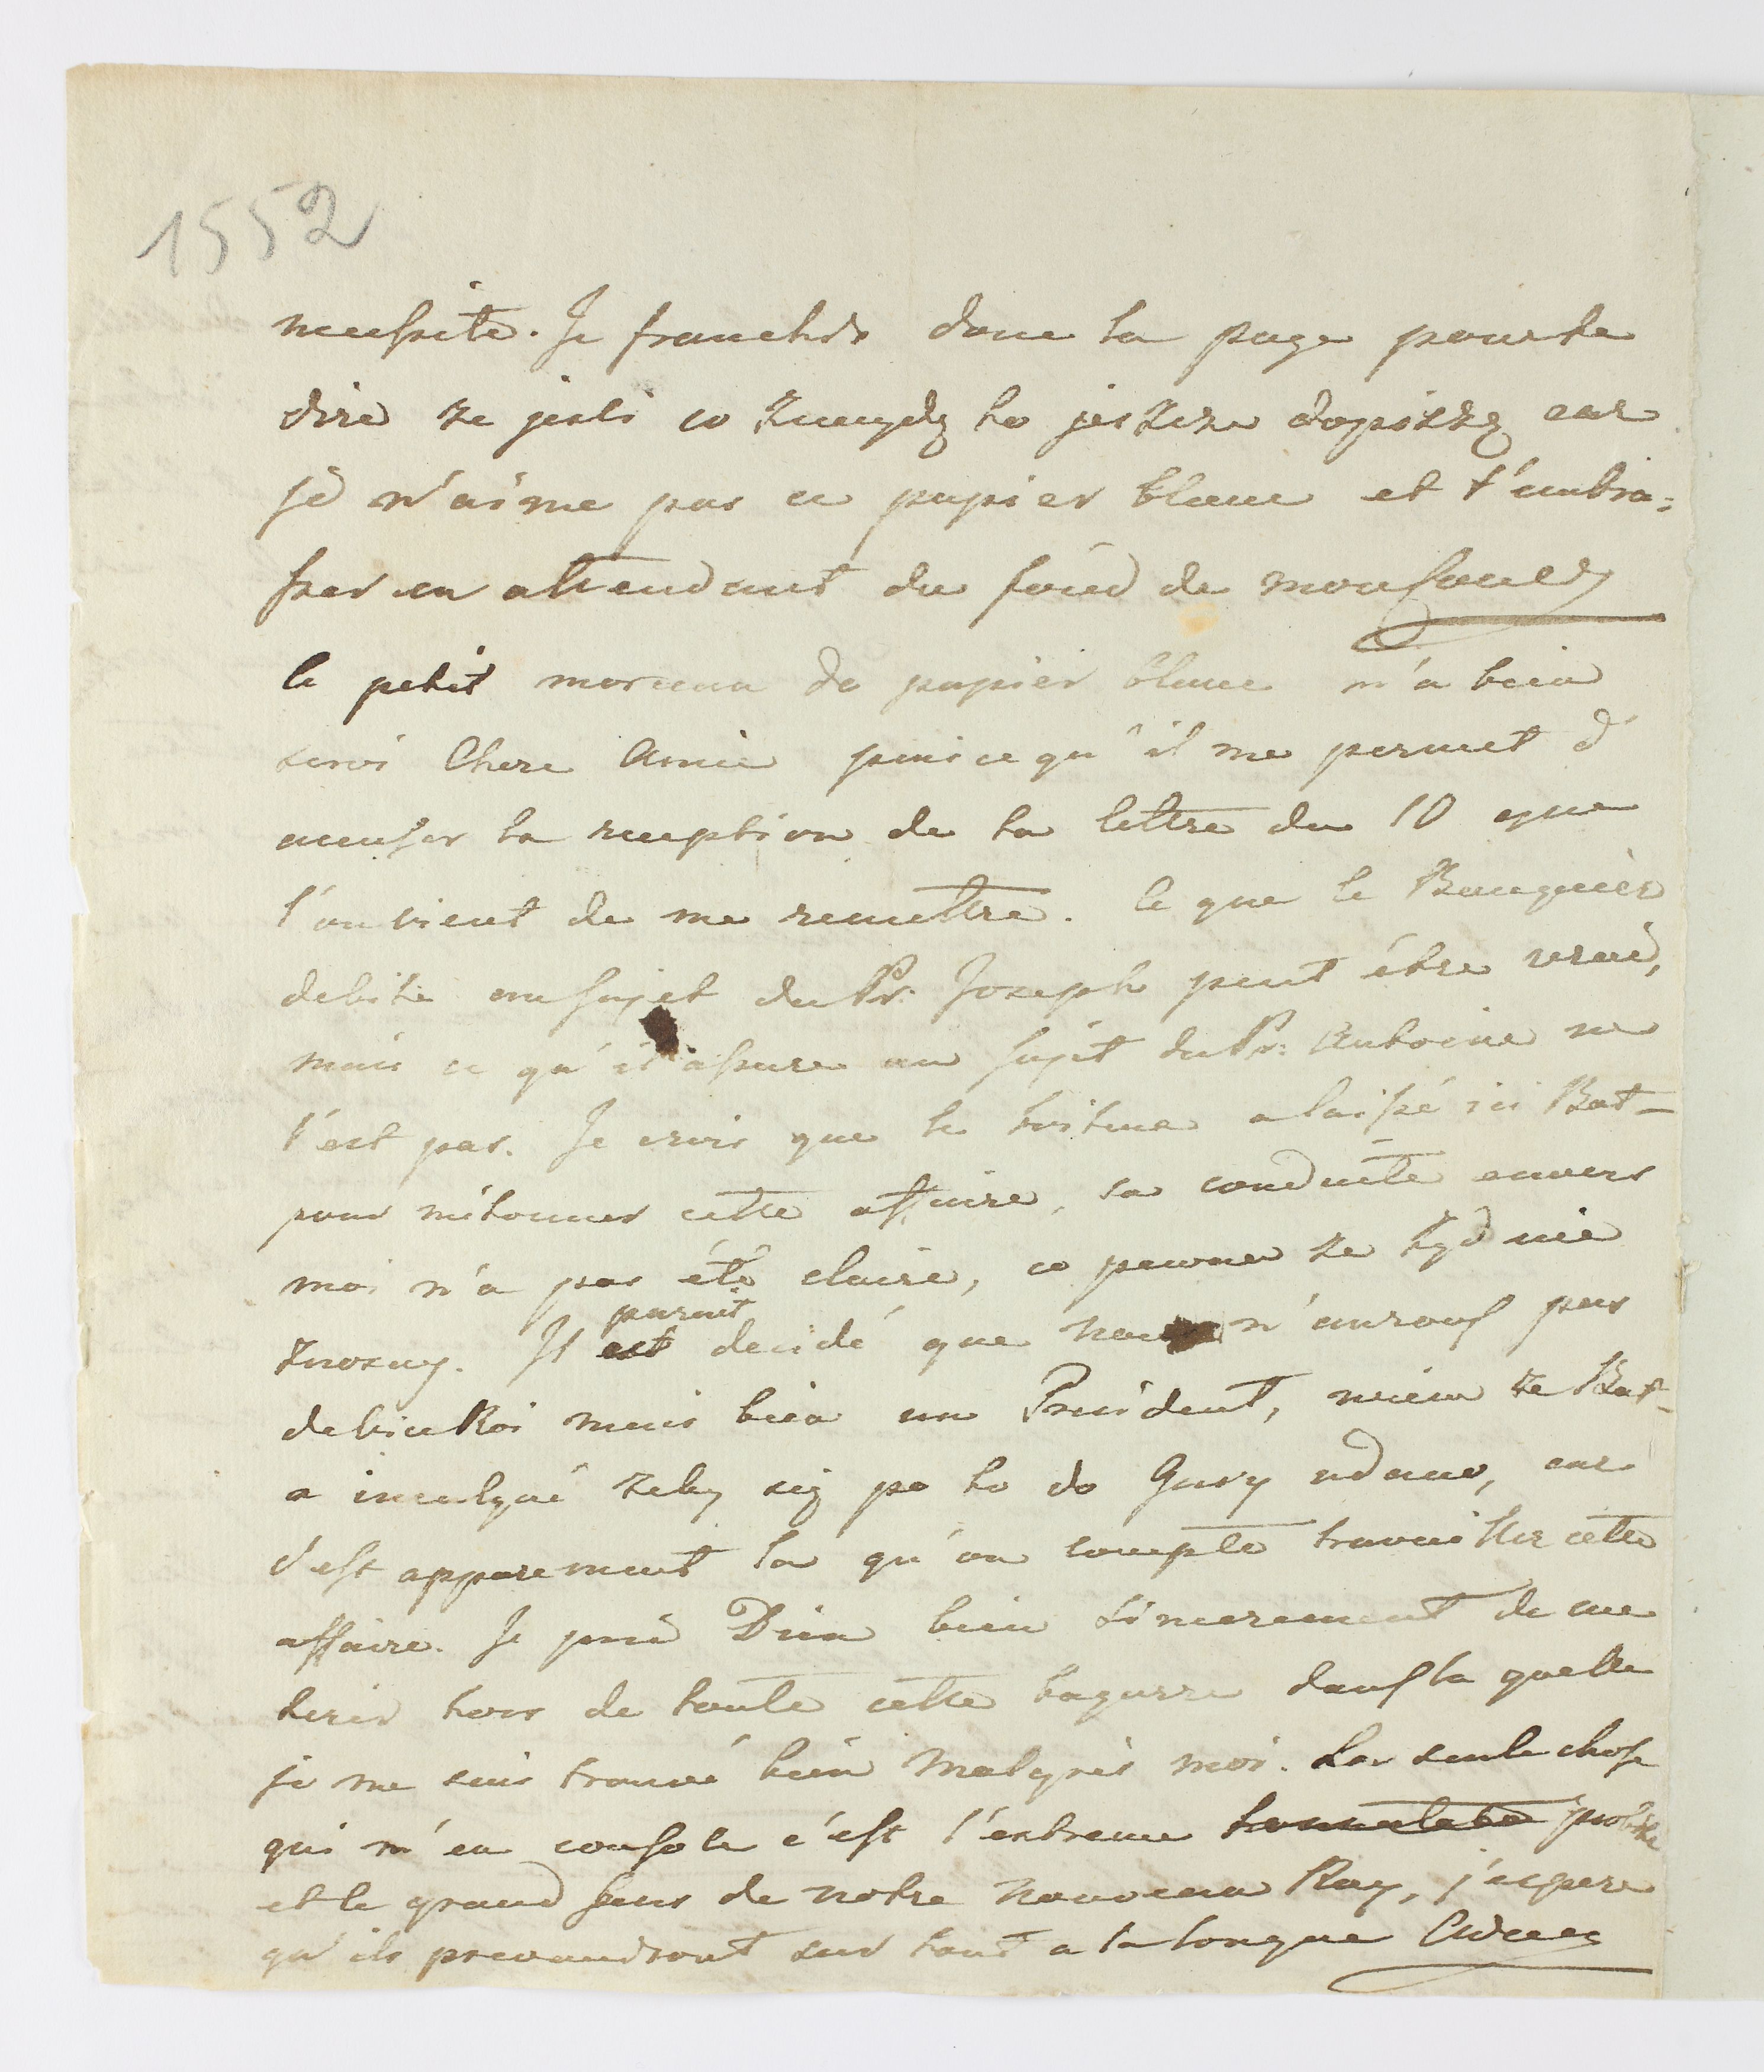 1552
necessite. Je franchis donc la page pour te
dire ze jesli co znaydę to jeszcze dopiszę car
je n'aime pas ce papier blanc et t'embra=
sser en attendant du fond de mon coeur
le petit morceau de papier blanc m'a bien
servi Chere Amie puisce qu'il me permet d'
accuser la reception de ta lettre du 10 que
l'on vient de me remettre. Ce que le Banquier
debite au sujet du Pr: Joseph peut être vrai,
mais ce qu'il assure au sujet du Pr: Antoine ne
l'est pas. Je crois que le a laissé ici Bat–
pour mitonner cette affaire, sa conduite envers
moi n'a pas été claire, co pewna ze Żyd nie
znosny. Il est parait decidé que nous n'aurons pas
de Vice Roi mais bien un President, miem ze Bat–
a inculqué zeby się po to do Gury udano, car
c'est apparement la qu'on compte travailler cette
affaire. Je prie Dieu bien sincerement de me
tirer hors de toute cette bagarre dans la quelle
je me suis trouvé bien malgrès moi. La seule chose
qui m'en console c'est l'extreme probité
et le grand sens de notre nouveau Roy, j'espere
qu'ils prevaudront sur tout a la longue Adieu